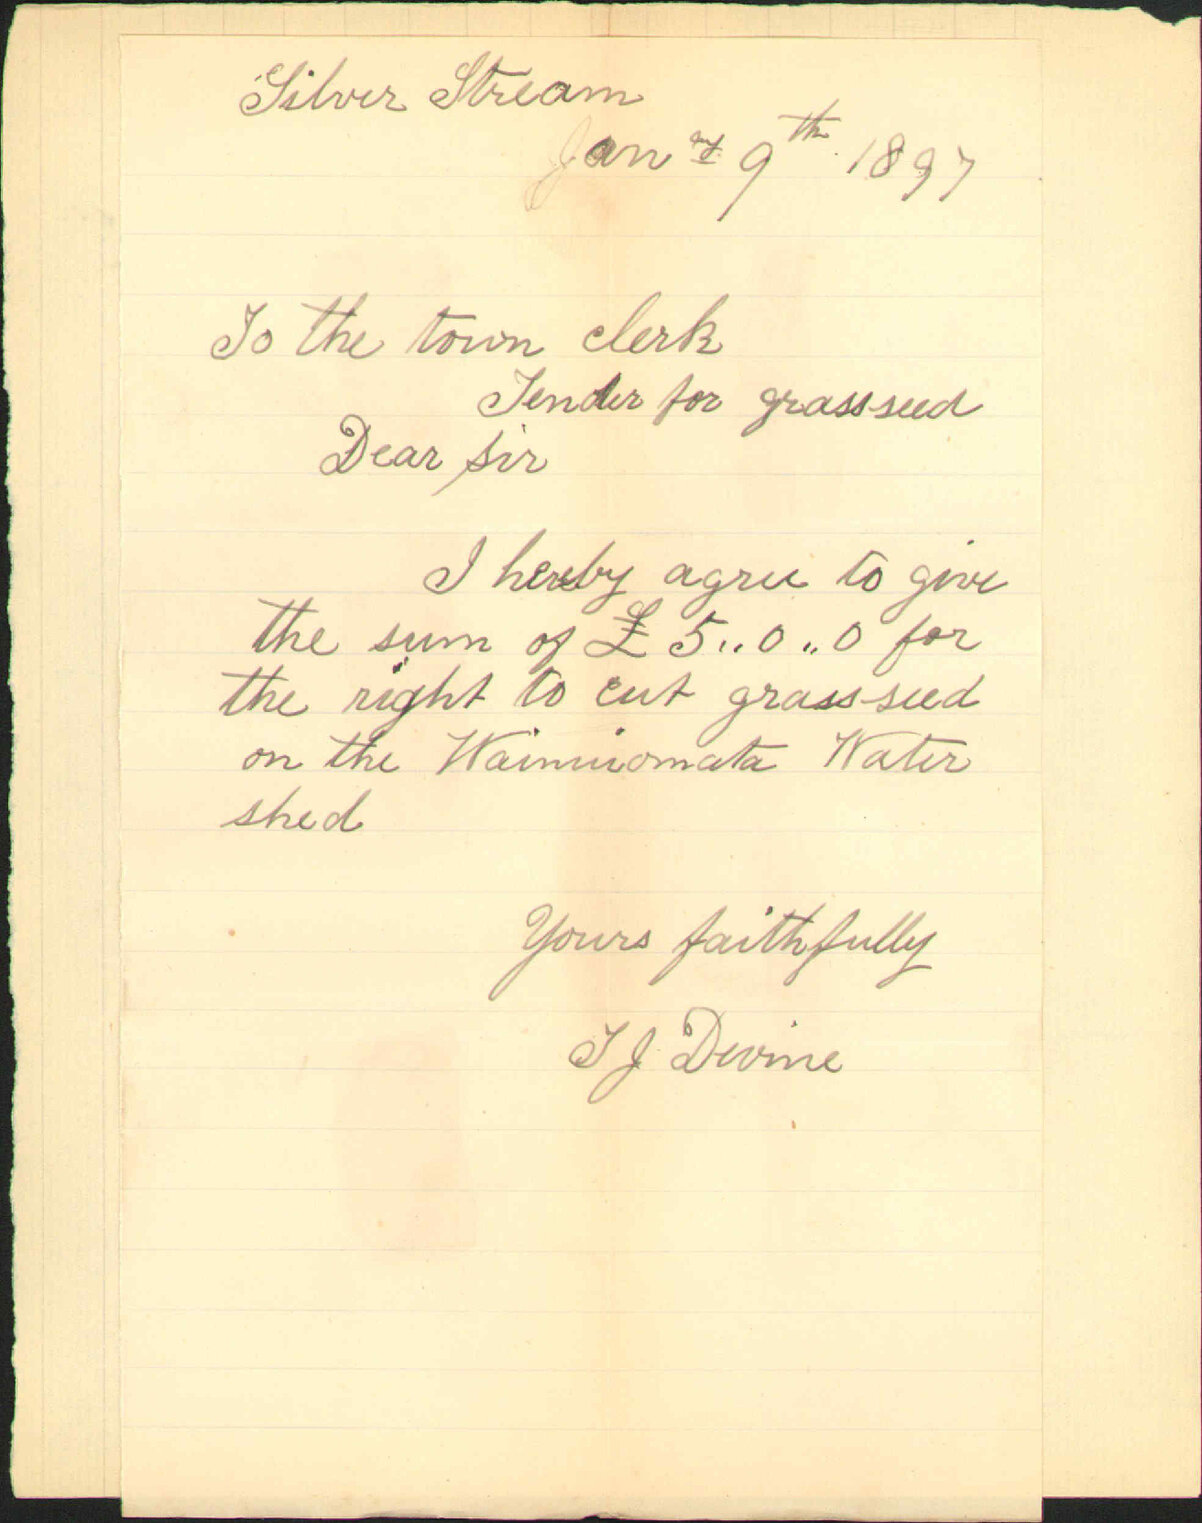 Silver Stream
Jan ry 9th 1897
To the town clerk
Tender for grass-seed
Dear Sir
I hereby agree to give
the sum of £5..0..0 for
the right to cut grass-seed
on the Wainuiomata Water
shed
Yours faithfully
T J Devine